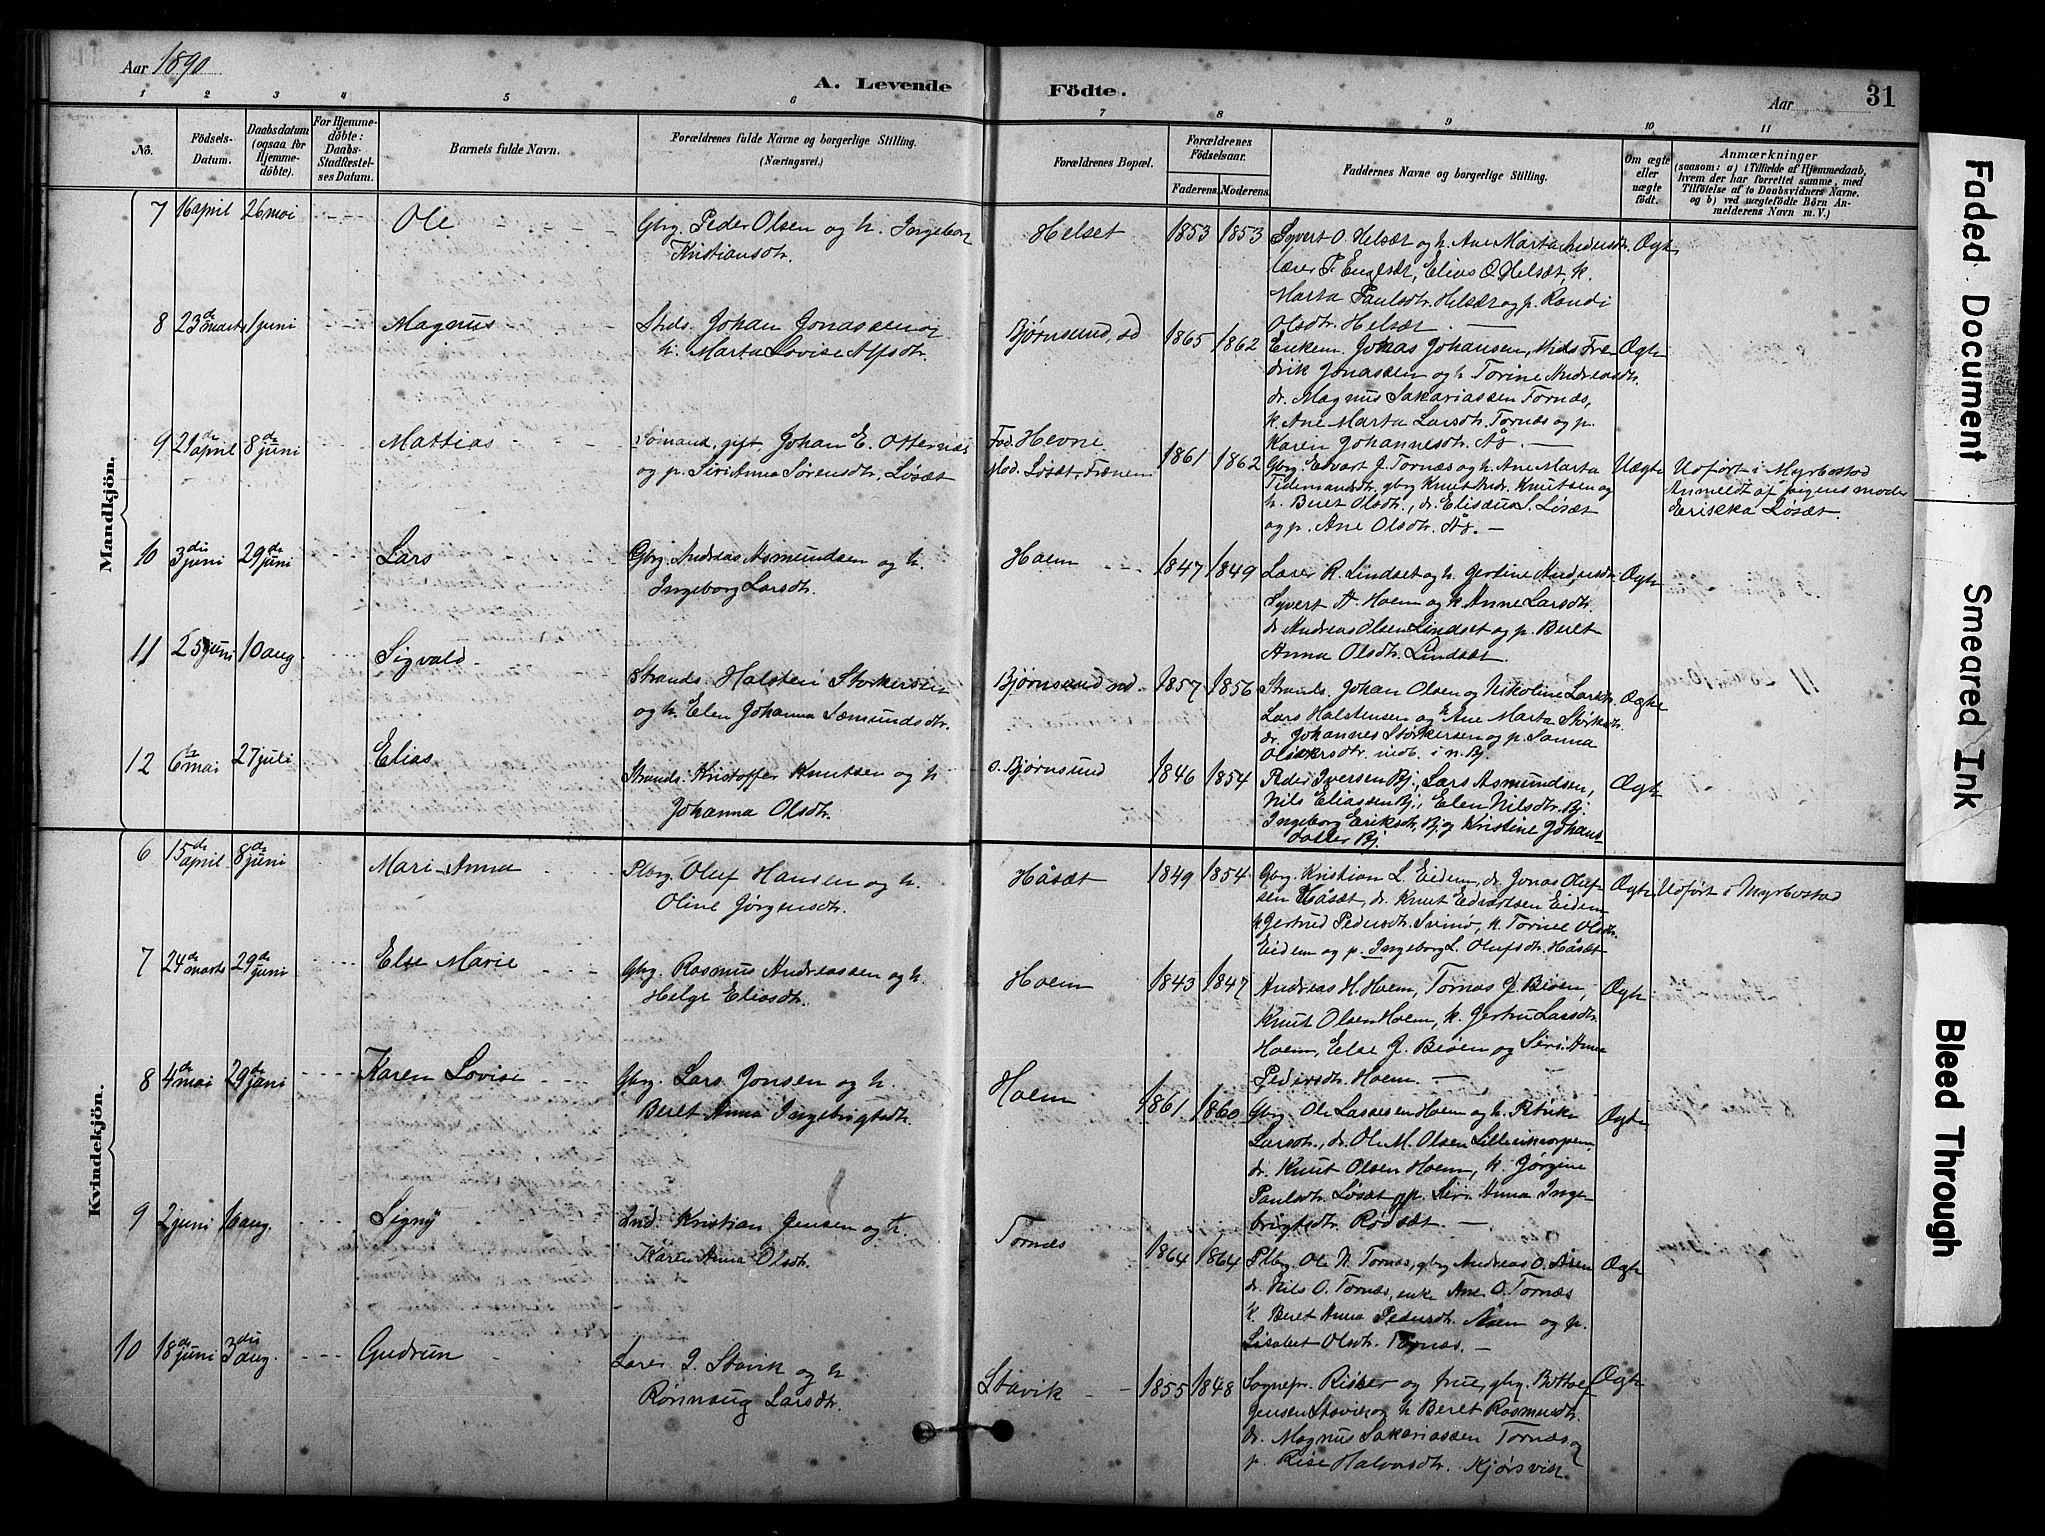 Aar 1890
A. Levende Födte.
Aar
31
1 2 3 4 5 6 7 8 9 10 11
No.
Födsels-
Datum.
Daabsdatum
(ogsaa for
Hjemme-
döbte).
For Hjemme-
döbte:
Daabs-
Stadfæstel-
ses Datum.
Barnets fulde Navn.
Forældrenes fulde Navne og borgerlige Stilling.
(Næringsvei.)
Forældrenes Bopæl.
Forældrenes
Födselsaar.
Faderens. Moderens.
Faddernes Navne og borgerlige Stilling.
Om ægte
eller
uægte
födt.
Anmærkninger
(saasom: a) i Tilfælde af Hjemmedaab,
hvem der har forrettet samme, med
Tilföielse af to Daabsvidners Navne.
og b) ved uægtefödte Börn An-
melderens Navn m. V.)
Mandkjön.
7 16 april 26 mai Ole
Gbrg. Peder Olsen og h. Ingeborg
Kristiansdtr.
Helset 1853 1853
Syvert O. Helsæt og h. Ane Marta Andersdtr. Ægte
lærer P. Engesæt, Elias O. Helsæt, k.
Marta Paulsdtr. Helsæt og p. Randi
Olsdtr. Helsæt. —
8 23de marts 1 juni Magnus
Strds. Johan Jonassen og
h. Marta Lovise Alfsdtr.
Bjørnsund, sd 1865 1862
Enkem. Jonas Johansen, strds Fre- Ægte
drik Jonassen og h Torine Andreasdtr.
dr. Magnus Sakariassen Tornæs,
k. Ane Marta Larsdtr. Tornæs og p.
Karen Johannesdtr. Ås. —
9 21de april 8de juni Mattias
Sømand, gift Johan E. Otternæs
og p. Siri Anna Sørensdtr. Løsæt
Fad. Hevne
Mod. Løsæt, Frænen
1861 1862
Gbrg. Edvart J. Tornæs og h. Ane Marta Uægte
Tidemandsdtr. gbrg Knut Andr. Knutsen og
h. Beret Olsdtr., dr. Elisæus S. Løsæt
og p. Ane Olsdtr. Ås. —
Udført i Myrbostad
Anmeldt af pigens moder
Erikka Løsæt.
10 3die juni 29de juni Lars
Gbrg. Andreas Asmundsen og h.
Ingeborg Larsdtr.
Hoem 1847 1849
Lærer R. Lindset og h. Gertine Andersdtr. Ægte
Syvert A. Hoem og k. Anne Larsdtr.
dr. Andreas Olsen Lindset og p. Beret
Anna Olsdtr. Lindsæt.
11 25 juni 10 aug Sigvald
Strands. Halsten Storkersen
og h. Elen Johanna Sæmundsdtr.
Bjørnsund nd. 1857 1856
Strands. Johan Olsen og Nikoline Larsdtr Ægte
Lars Halstensen og k Ane Marta Storkersdtr.
dr. Johannes Storkersen og p. Sanna
12 6te mai 27 juli Elias
Strands. Kristoffer Knutsen og h
Johanna Olsdtr.
o. Bjørnsund 1846 1854
Peder Iversen Bj., Lars Asmundsen, Ægte
Nils Eliassen Bj., Elen Nilsdtr. Bj.
Ingeborg Eriksdtr. Bj. og Kristine Johans-
datter Bj.
Kvindekjön.
6 15de april 8de juni Mari-Anna
Plbrg. Oluf Hansen og h.
Oline Jørgensdtr.
Håsæt 1849 1854
Gbrg. Kristian L. Eidem, dr. Jonas Oluf- Ægte
sen Håsæt, dr. Knut Edvartsen Eidem
k. Gertrud Pedersdtr. Svinø, k. Torine Olsdtr.
Eidem og p. Ingeborg L. Olufsdtr. Håsæt
Udført i Myrbostad
7 24de marts 29de juni Else Marie
Gbrg. Rasmus Andreassen og h.
Helge Eliasdtr.
Hoem 1843 1847
Andreas H. Hoem, Tornæs J. Beøen, Ægte
Knut Olsen Hoem, k. Gertru Larsdtr.
Hoem, Else J. Beøen og Siri Anna
Pedersdtr. Hoem. —
8 4de mai 29de juni Karen Lovise
Gbrg. Lars Jonsen og h.
Beret Anna Ingebrigtsdtr.
Hoem 1861 1860
Gbrg. Ole Lassesen Hoem og h. Petrike Ægte
Larsdtr., dr. Ole M. Olsen
dr. Knut Olsen Hoem, k. Jørgine
Paulsdtr. Løsæt og p. Siri Anna Inge-
brigtsdtr. Rødsæt. —
9 2 juni 10 aug. Signy
Ind. Kristian Jensen og h.
Karen Anna Olsdtr.
Tornæs 1864 1864
Plbrg. Ole N. Tornæs, gbrg Andreas O. Aasen Ægte
dr. Nils O. Tornæs, enke Ane O. Tornæs
k. Beret Anna Pedersdtr. Åsen og p.
Lisabet Olsdtr. Tornæs. —
10 18de juni 3die aug. Gudrun
Lærer J. Stavik og h
Rønnaug Larsdtr.
Stavik 1855 1848
Sognepr. Risber og frue, gbrg. Bottolf Ægte
Jensen Stavik og h Beret Rasmusdtr.
dr. Magnus Sakariassen Tornæs og
p. Rise Halvorsdtr. Kjørsvik
Faded Document
Smeared Ink
Bleed Through